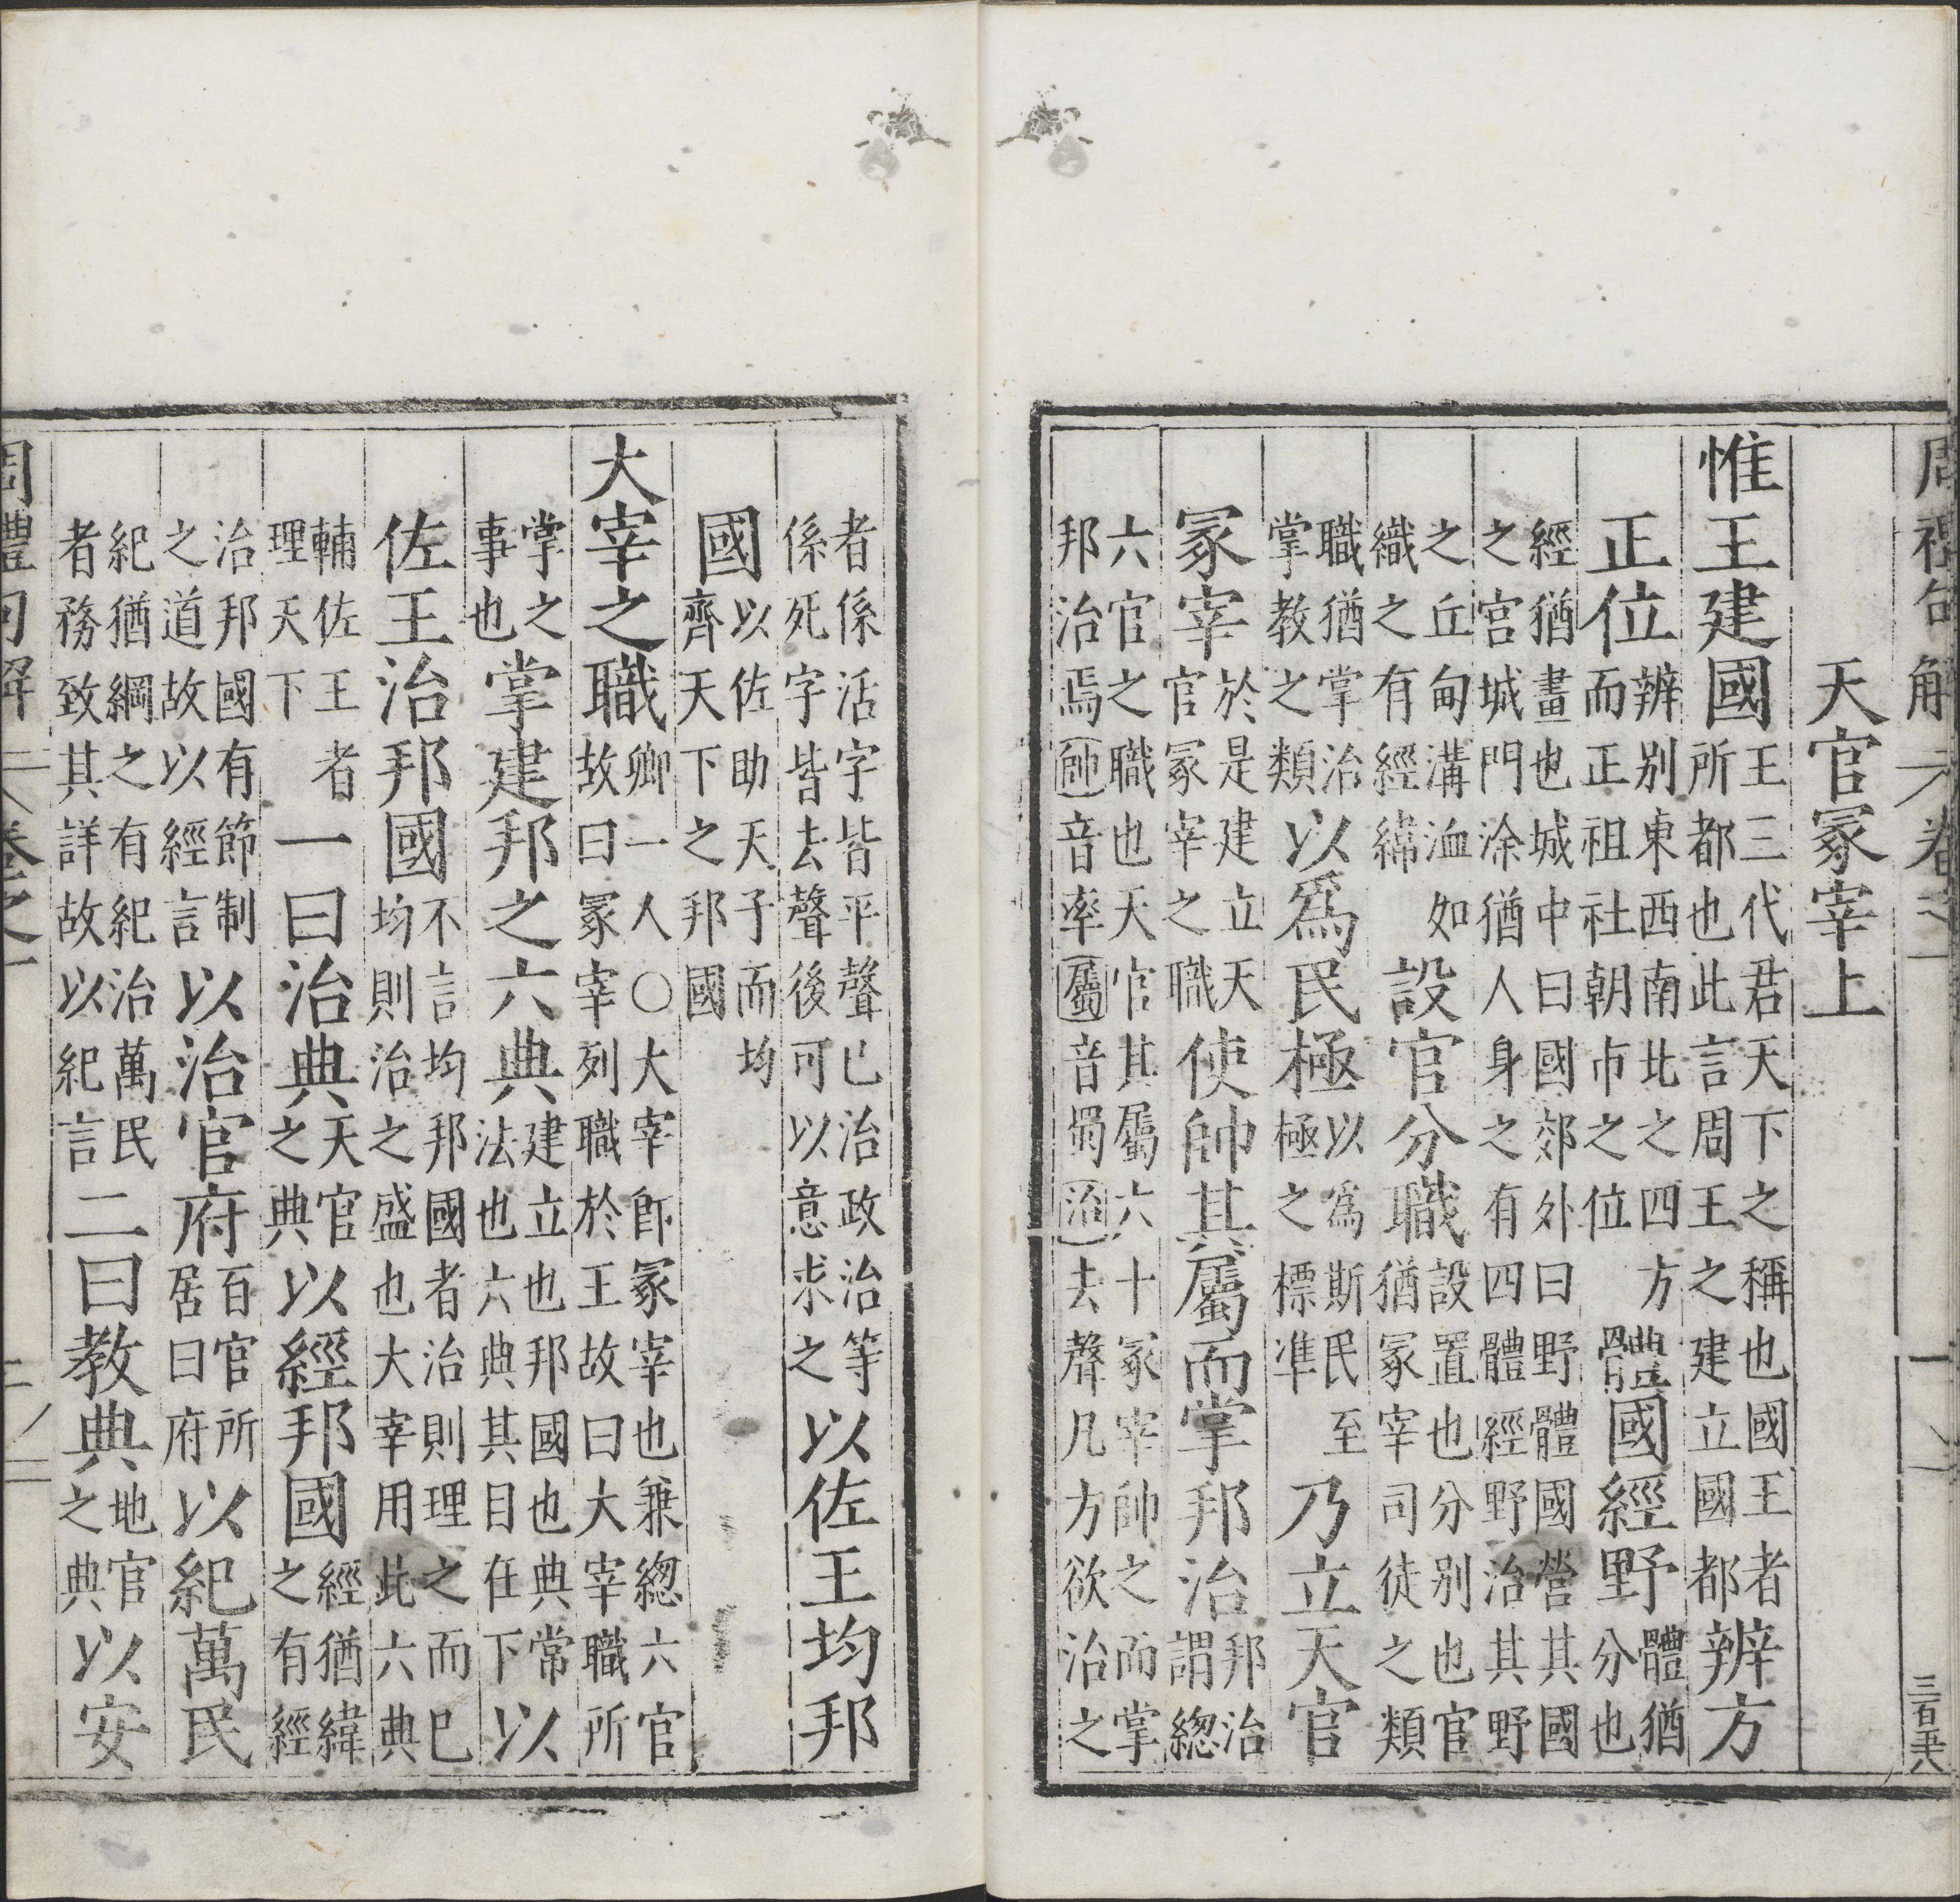 周禮句解 卷之一 一 三百五十八
天官冢宰上
惟王建國王三代君天下之稱也國王者所都也此言周王之建立國都辨方
正位辨别東西南北之四方而正祖社朝市之位體國經野體猶分也
經猶畫也城中曰國郊外曰野體國營其國之宫城門涂猶人身之有四體經野治其野
之丘甸溝洫如織之有經緯設官分職設置也分别也官猶冢宰司徒之類
職猶掌治掌教之類以爲民極以爲斯民至極之標準乃立天官
冢宰於是建立天官冢宰之職使帥其屬而掌邦治邦治謂緫
六官之職也天官其屬六十冢宰帥之而掌邦治焉帥音率屬音蜀治去聲凡方欲治之
者係活字皆平聲已治政治等係死字皆去聲後可以意求之以佐王均邦
國以佐助天子而均齊天下之邦國
大宰之職卿一人○大宰即冢宰也兼緫六官故曰冢宰列職於王故曰大宰職所
掌之事也掌建邦之六典建立也邦國也典常法也六典其目在下以
佐王治邦國不言均邦國者治則理之而已均則治之盛也大宰用此六典
輔佐王者理天下一曰治典天官之典以經邦國經猶緯之有經
治邦國有節制之道故以經言以治官府百官所居曰府以紀萬民
紀猶綱之有紀治萬民者務致其詳故以紀言二曰教典地官之典以安
周禮句解 卷之一 二